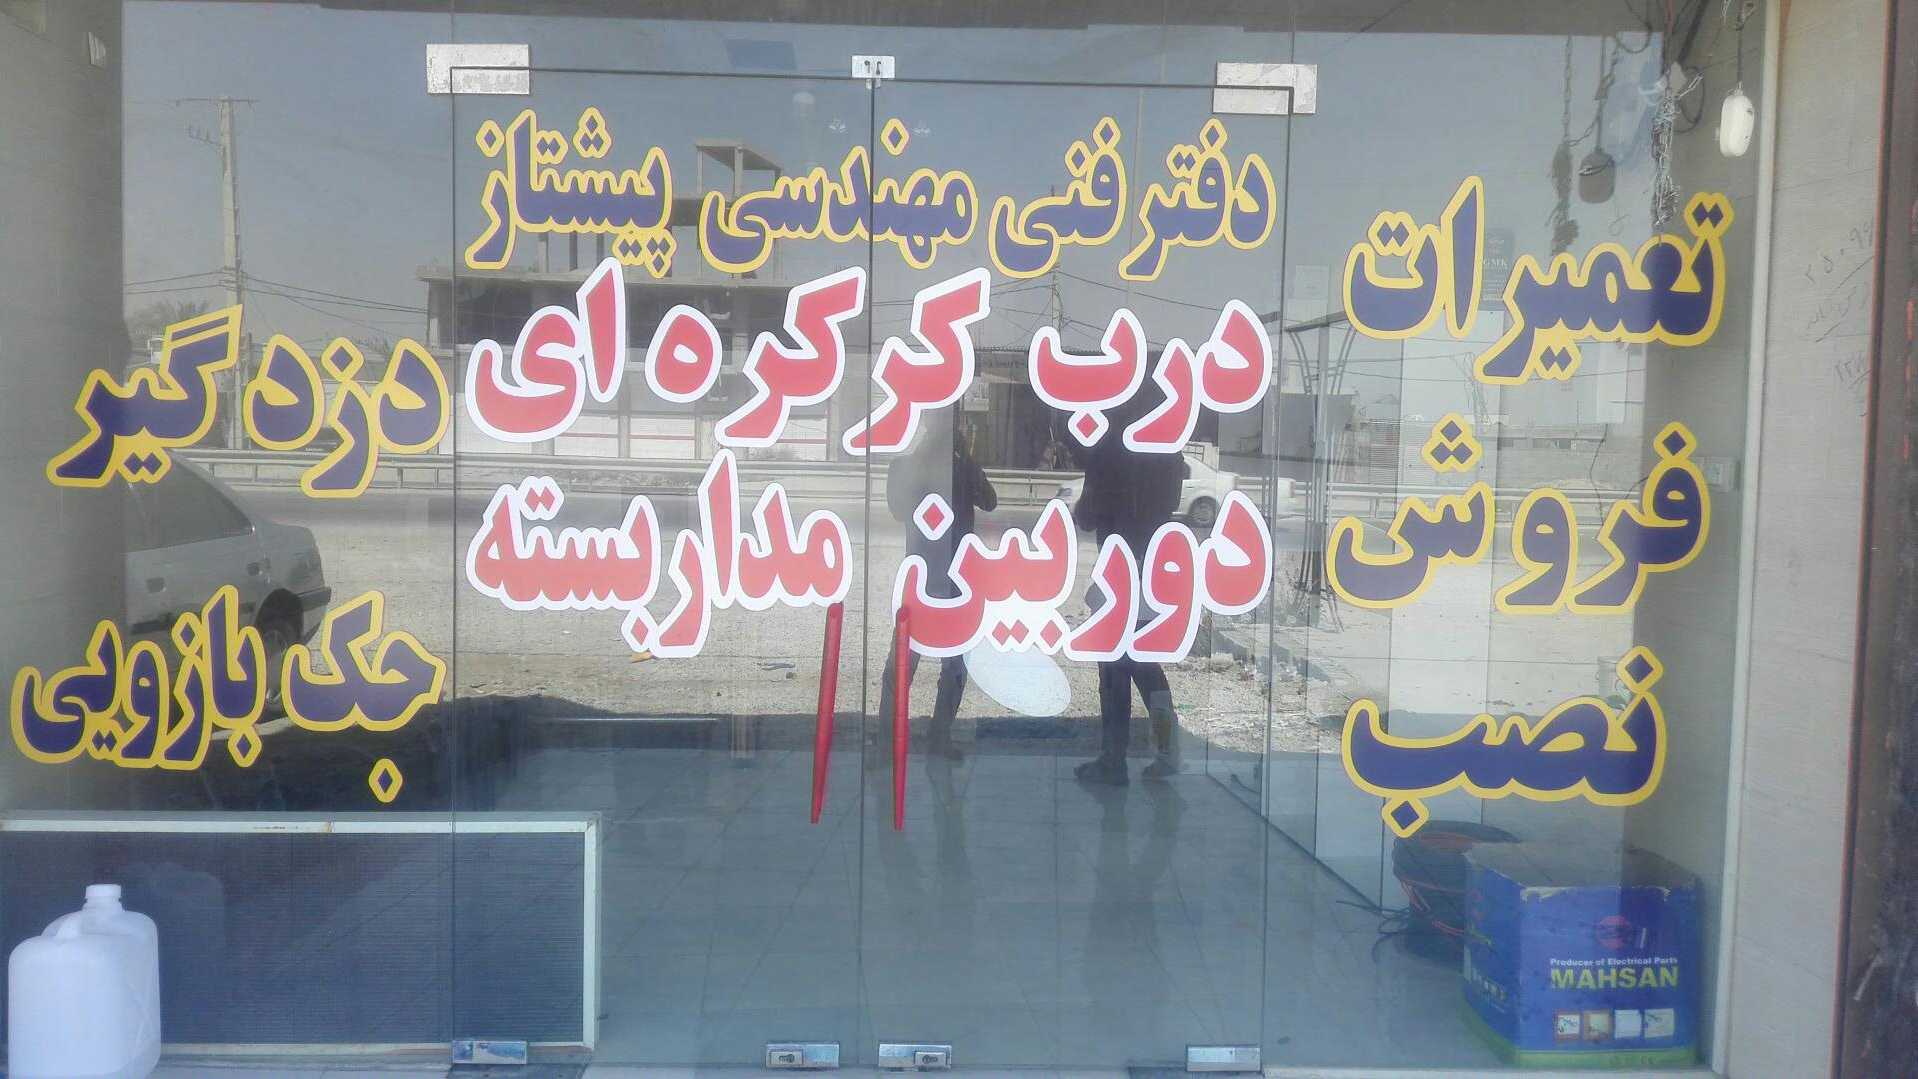 دفتر فنی مهندسی پیشتاز
درب کرکره ای
دوربین مداربسته
تعمیرات
فروش
نصب
دزدگیر
جک بازویی
GMK
Producer of Electrical Parts
MAHSAN